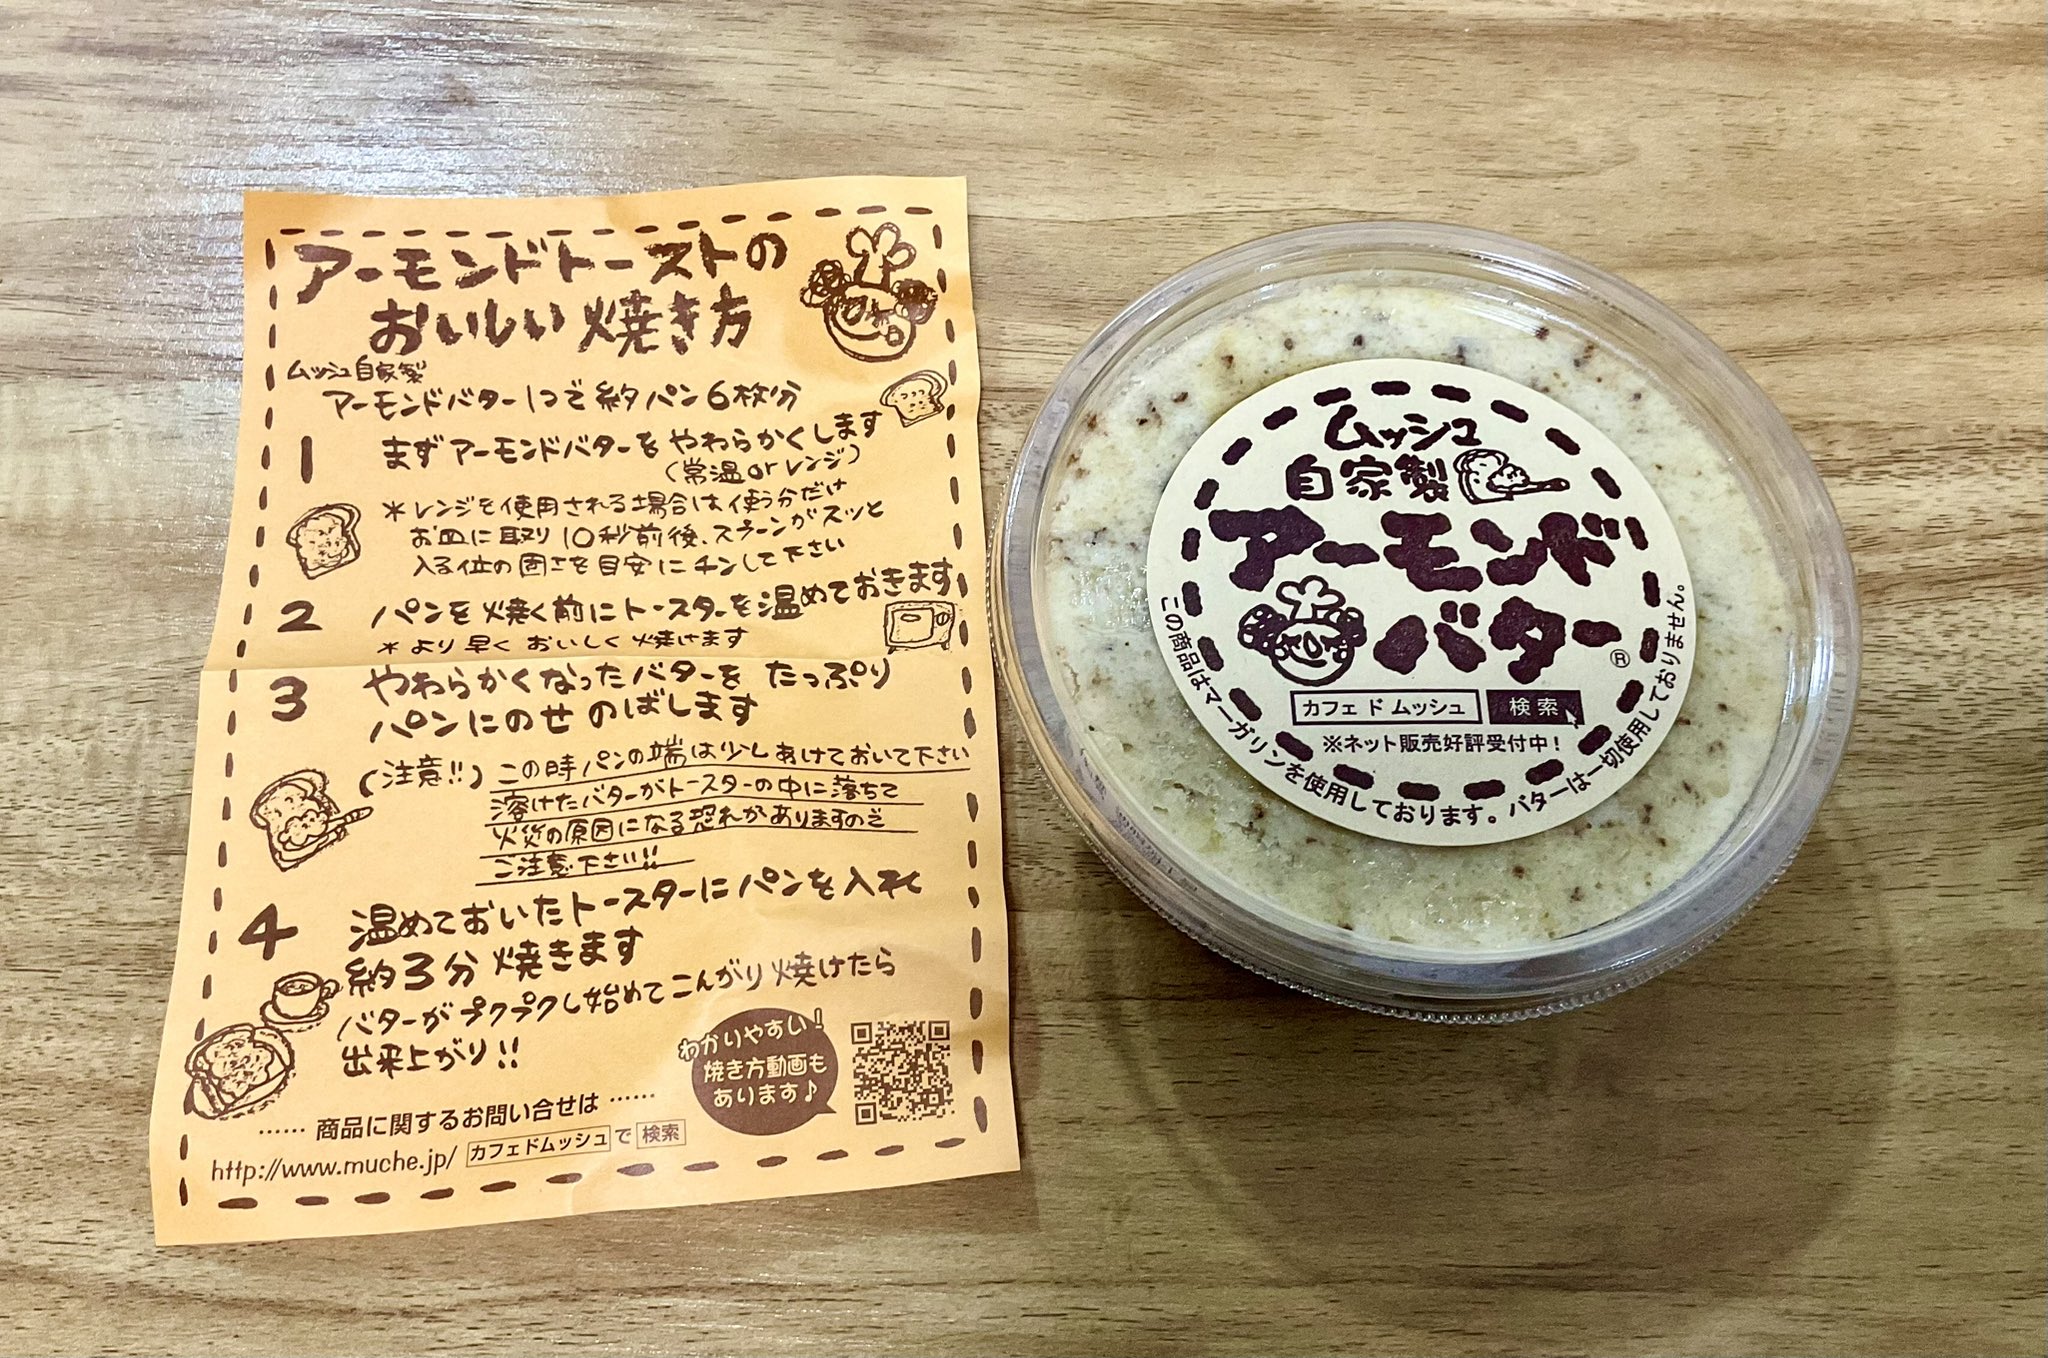 アーモンドトーストの
おいしい焼き方
ムッシュ自家製
アーモンドバター1つで約パン6枚分
1 まずアーモンドバターをやわらかくします
(常温orレンジ)
*レンジを使用される場合は使う分だけ
お皿に取り10秒前後、スプーンがスッと
入る位の固さを目安にチンして下さい
2 パンを焼く前にトースターを温めておきます
*より早くおいしく焼けます
3 やわらかくなったバターをたっぷり
パンにのせのばします
(注意!!) この時パンの端は少しあけておいて下さい
溶けたバターがトースターの中に落ちて
火災の原因になる恐れがありますので
ご注意下さい!!
4 温めておいたトースターにパンを入れ
約3分焼きます
バターがプクプクし始めてこんがり焼けたら
出来上がり!!
わかりやすい!
焼き方動画も
あります♪
……商品に関するお問い合せは……
http://www.muche.jp/ カフェドムッシュで検索
ムッシュ
自家製
アーモンド
バター®
カフェ ド ムッシュ 検索
※ネット販売好評受付中!
この商品はマーガリンを使用しております。バターは一切使用しておりません。